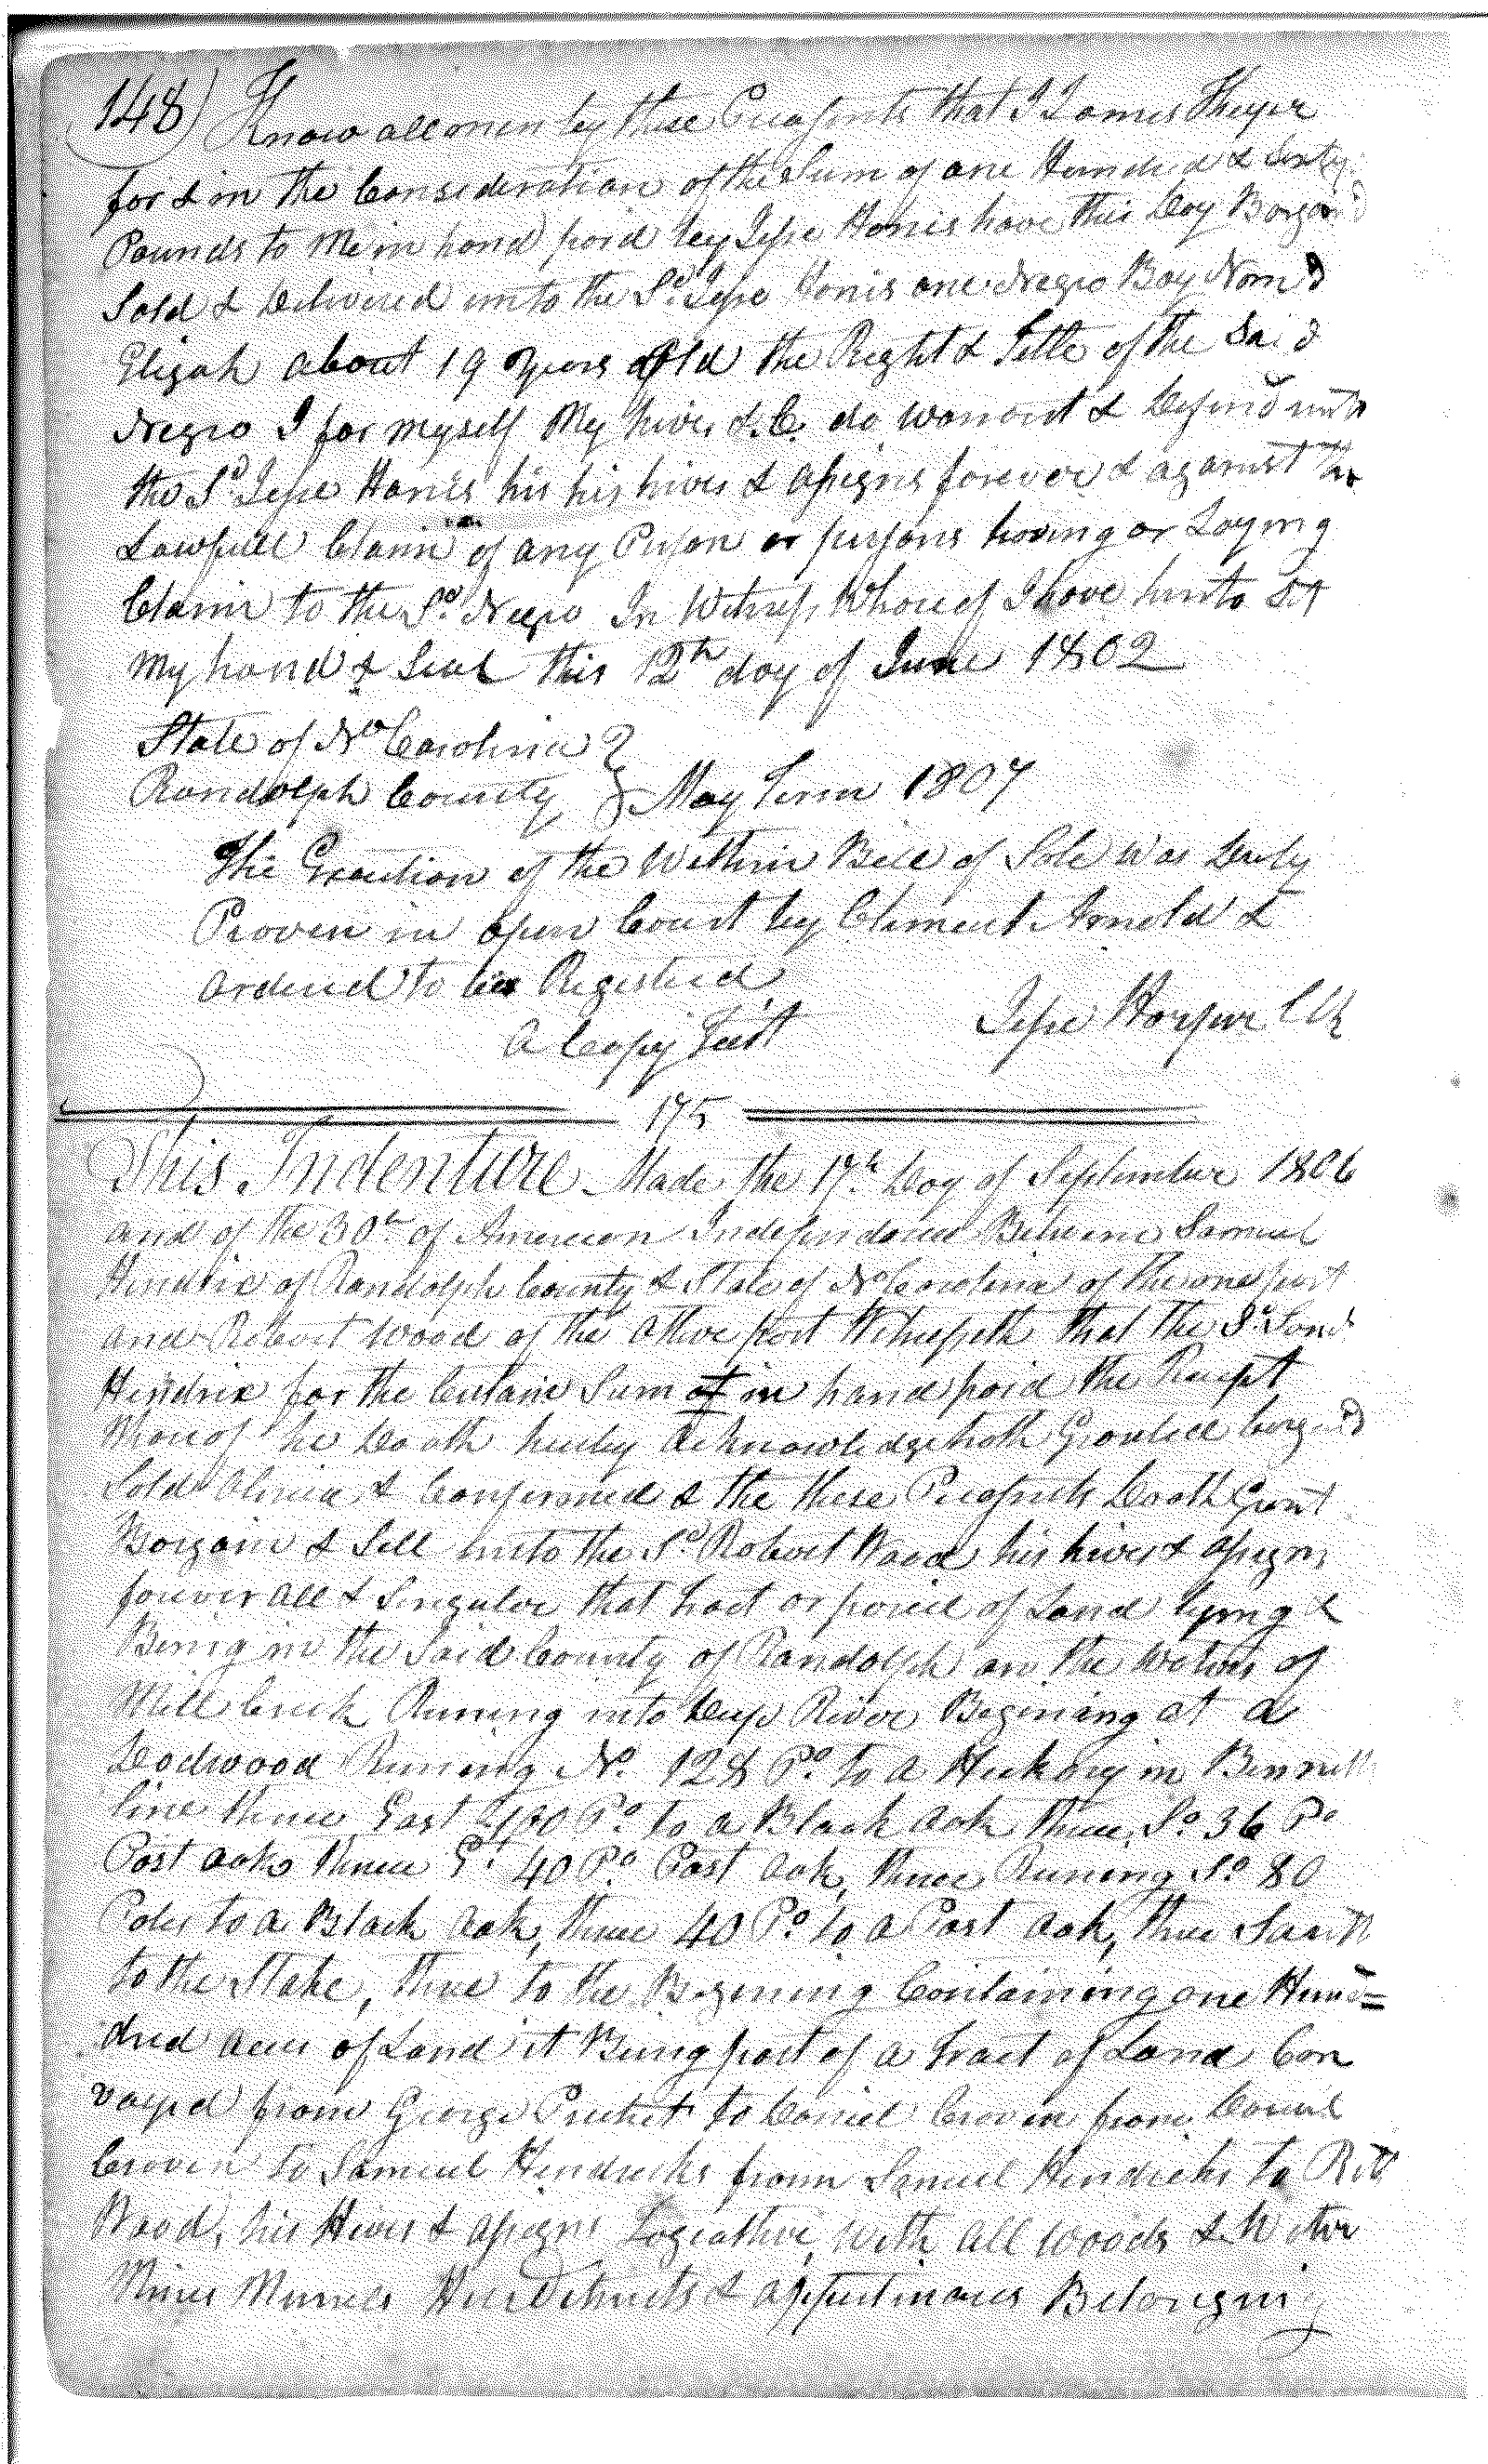 148) Know all men by these Presents that I James
for & in the Consideration of the Sum of one Hundred & Sixty
Pounds to Me in hand paid by Jesse Harris have this Day Bargan'd
Sold & Delivered unto the Sd. Jesse Harris one Negro Boy Nam'd
Elijah about 19 years Old the Right & Title of the Said
Negro I for myself My hires &.C. do warrant & Defend unto
the Sd. Jesse Harris his his hires & assigns forever & against the
Lawfull Claim of any Person or persons having or Laying
Claim to the Sd. Negro In Witness Whereof I have hunto Set
my hand & Seal this 12th day of June 1802
State of No Carolina }
Randolph County } May Term 1807
The Execution of the Within Bill of Sale Was Duly
Proven in open Court by Clement Arnold &
ordered to be Registerd
A Copy Test Jesse Harper Clk
175
This Indenture Made the 17th Day of September 1806
and of the 30th of American Independance Between Samuel
Hendrix of Randolph County & State of No Carolina of the one part
and Robert Wood of the other part Witnesseth that the Sd. Saml
Hendrix for the Certain Sum of in hand paid the Receipt
Whereof he Doath hereby acknowledgehath Granted bargan'd
Sold & Confirmed & the these Presents Doath Grant
Bargain & Sell unto the Sd. Robert Wood his hires & assigns
forever all & Singular that tract or parcel of Land lying &
Being in the Said County of Randolph on the Waters of
Mill Creek Runing into Deep River Begining at a
Dodwood Runing No. 128 Po. to a Hickory in
line thence East 100 Po. to a Black oak thence So. 36 Po
Post oak thence Et. 40 Po. Post oak, thence Runing So. 80
Poles to a Black oak, thence 40 Po. to a Post oak, thence South
to the Stake, thence to the Begining Containing one Hund=
dred acres of Land it Being part of a tract of Land Con
vayed from George to Daniel Craven from Daniel
Craven to Samuel Hendricks from Samuel Hendricks to Robt
Wood, his Hires & assigns Togeather with all Woods & Water
Mines Minrels Heredetments & appurtinances Belonging